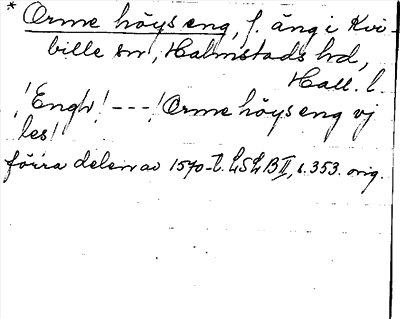 * Orme höys eng, f. äng i Kvi-
bille sn, Halmstads hd,
Hall. l.
! Engh! --- ! Orme höys eng vj
les!
förra delen av 1570-t. LSLB II, s. 353. orig.